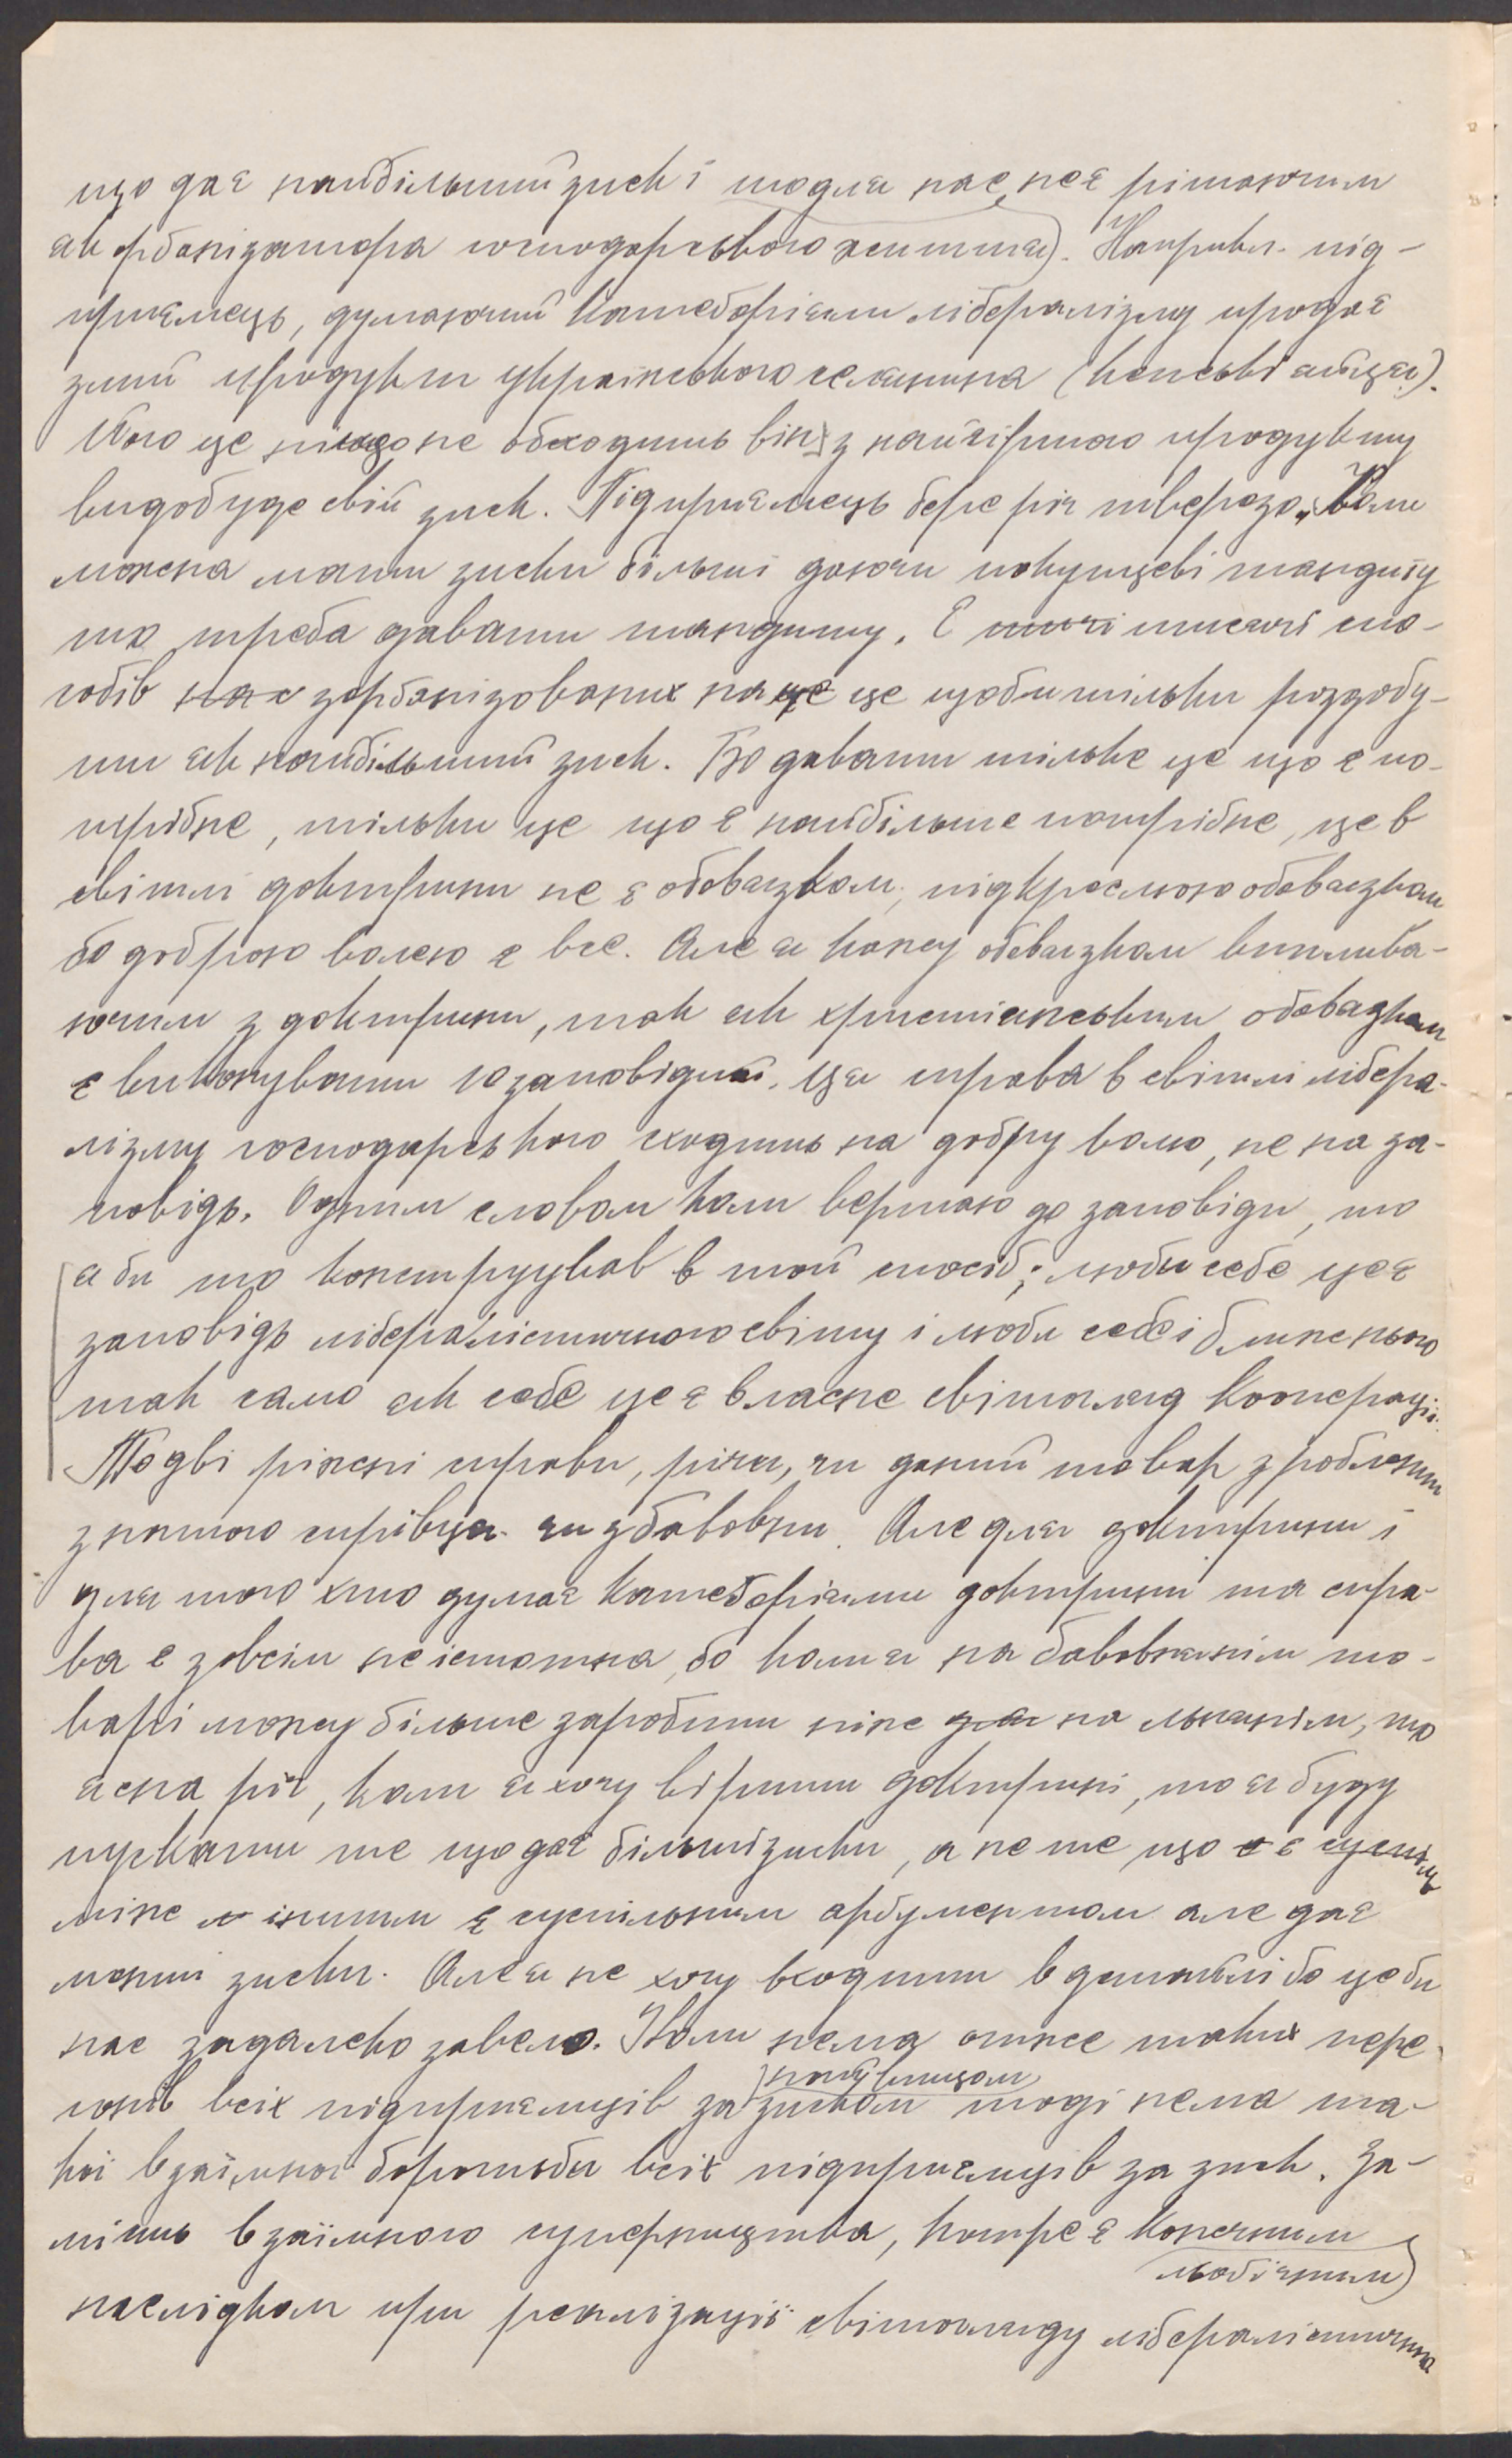 що дає найбільший зиск і то для нас не є рішаючим
як орґанізатора господарського життя). Наприкл. під-
приємець, думаючий катеґоріями лібералізму продає
злий продукт українського селянина (кепські яйця).
Його це нищо не обходить він з найгіршого продукту
видобуде свій зиск. Підприємець бере річ тверезо, Коли
можна мати зиски більші даючи покупцеві тандиту
то треба давати тандиту. Є тисячі спо-
собів зорґанізованих на це щоби тільки роздобу-
ти як найбільший зиск. Бо давати тільке це що є по-
трібне, тільки це що є найбільше потрібне, це в
світлі доктрини не є обовязком, підкреслюю обовязком
бо доброю волею є все. Але я кажу обовязком виплива-
ючим з доктрини, так як християнським обовязком
є виконувати 10 заповідий. Ця справа в світлі лібера-
лізму господарського сходить на добру волю, не на за-
повідь. Одним словом коли вертаю до заповіди, то
я би то конструував в той спосіб; люби себе це є
заповідь лібералістичного світу і люби себе і ближнього
так само як себе це є власне світогляд кооперації.
То дві ріжні справи, річи, чи даний товар зроблений
з нашого сирівця чи з бавовни. Але для доктрини і
для того хто думає катеґоріями доктрини та спра-
ва є зовсім неістотна, бо коли я на бавовнянім то-
варі можу більше заробити ніже на льнянім, то
ясна річ, коли я хочу вірити доктрині, то я буду
шукати те що дає більші зиски, а не те що є
між іншим є суспільним арґументом але дає
менші зиски. Але я не хочу входити в деталі бо це би
нас задалеко завело. Коли нема отже таких пере-
гонів всіх підприємців за зиском тоді нема та-
кої взаїмної боротьби всіх підприємців за зиск. За-
мість взаїмного суперництва, котре є конечним
льоґічним)
наслідком при реалізації світогляду лібералістична